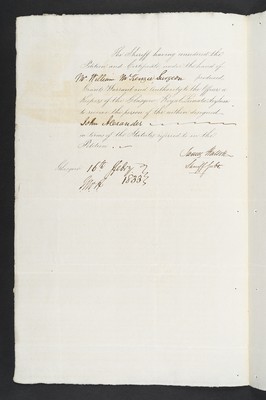 The Sheriff having considered the
Petition and Certificate under the hand of
Mr William Surgeon produced,
Grants Warrant and authority to the Officer or
Keeper of the Glasgow Royal Lunatic Asylum
to receive the person of the within designed
John Alexander
in terms of the Statute referred to in the
Petition.
Glasgow 16th Feby
1833